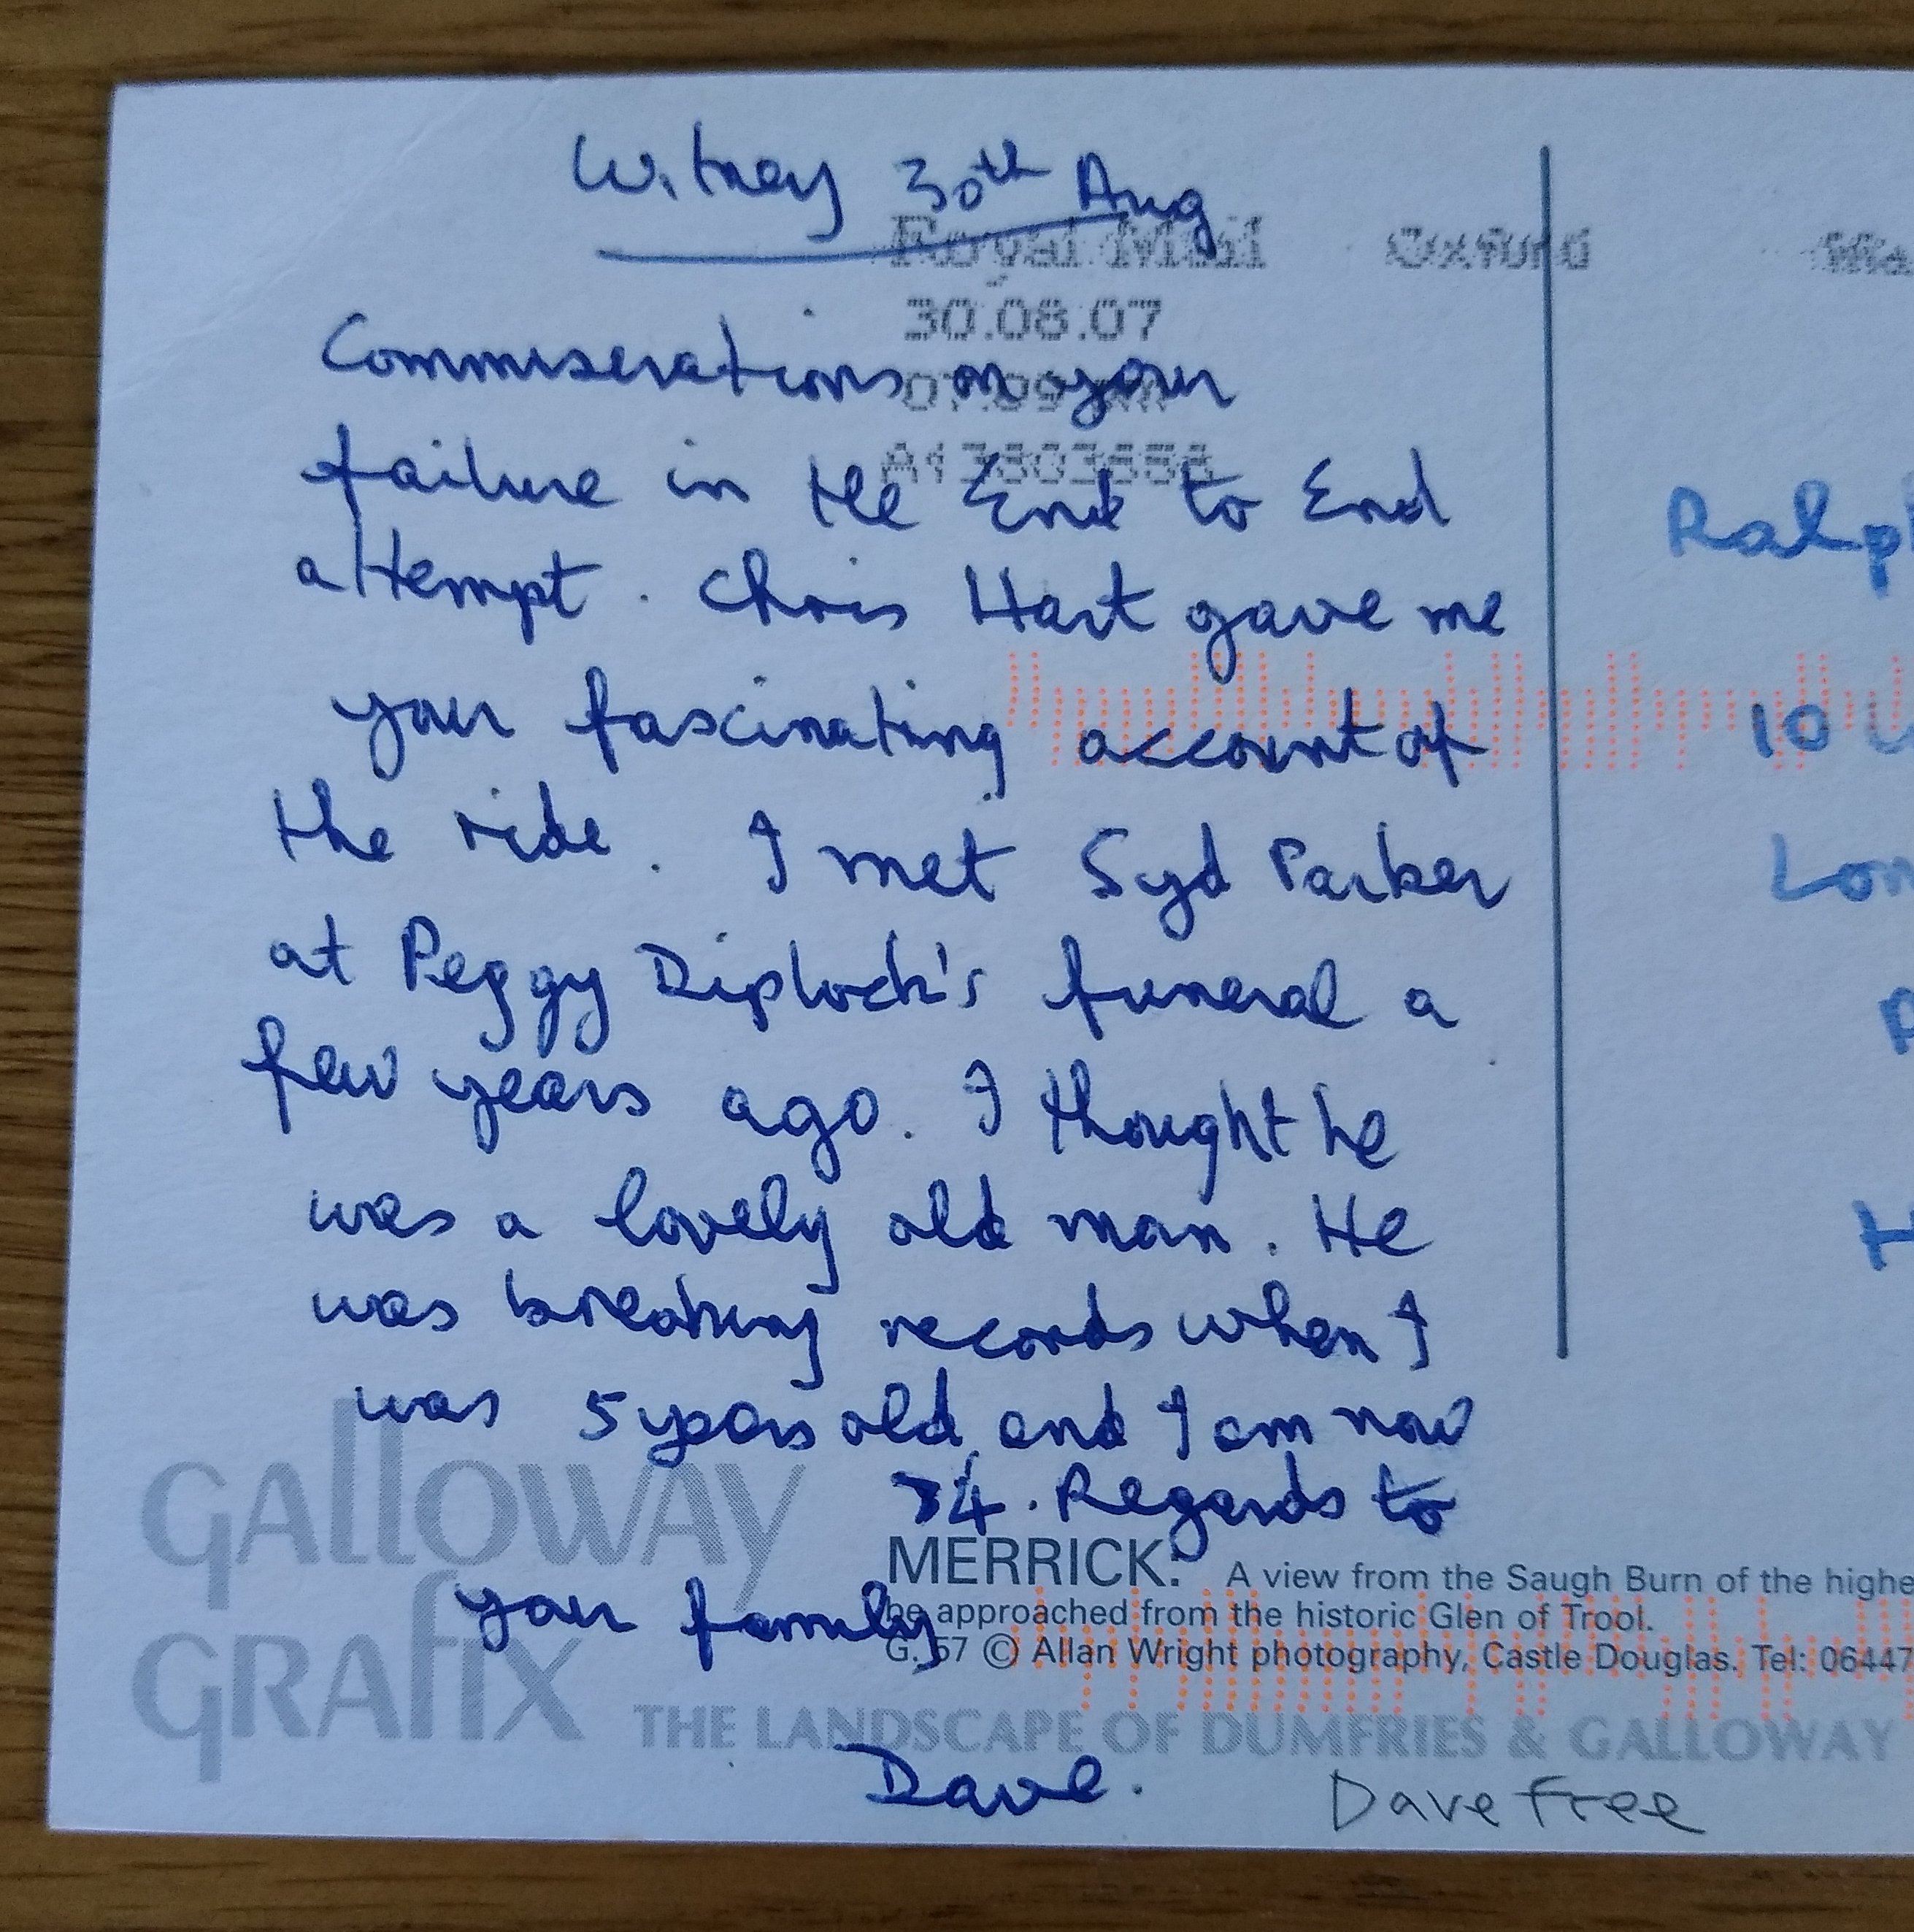 Witney 30th Aug
Royal Mail Oxford
30.08.07
Commiserations on your
failure in the End to End
attempt. Chris Hart gave me
your fascinating account of
the ride. I met Syd Parker
at Peggy Diplock's funeral a
few years ago. I thought he
was a lovely old man. He
was breaking records when I
was 5 years old and I am now
74. Regards to
your family
Dave.
Dave Free
Ralph
10
Lon
GALLOWAY
GRAFIX
MERRICK. A view from the Saugh Burn of the highe
be approached from the historic Glen of Trool.
G. 57 © Allan Wright photography, Castle Douglas. Tel: 06447
THE LANDSCAPE OF DUMFRIES & GALLOWAY